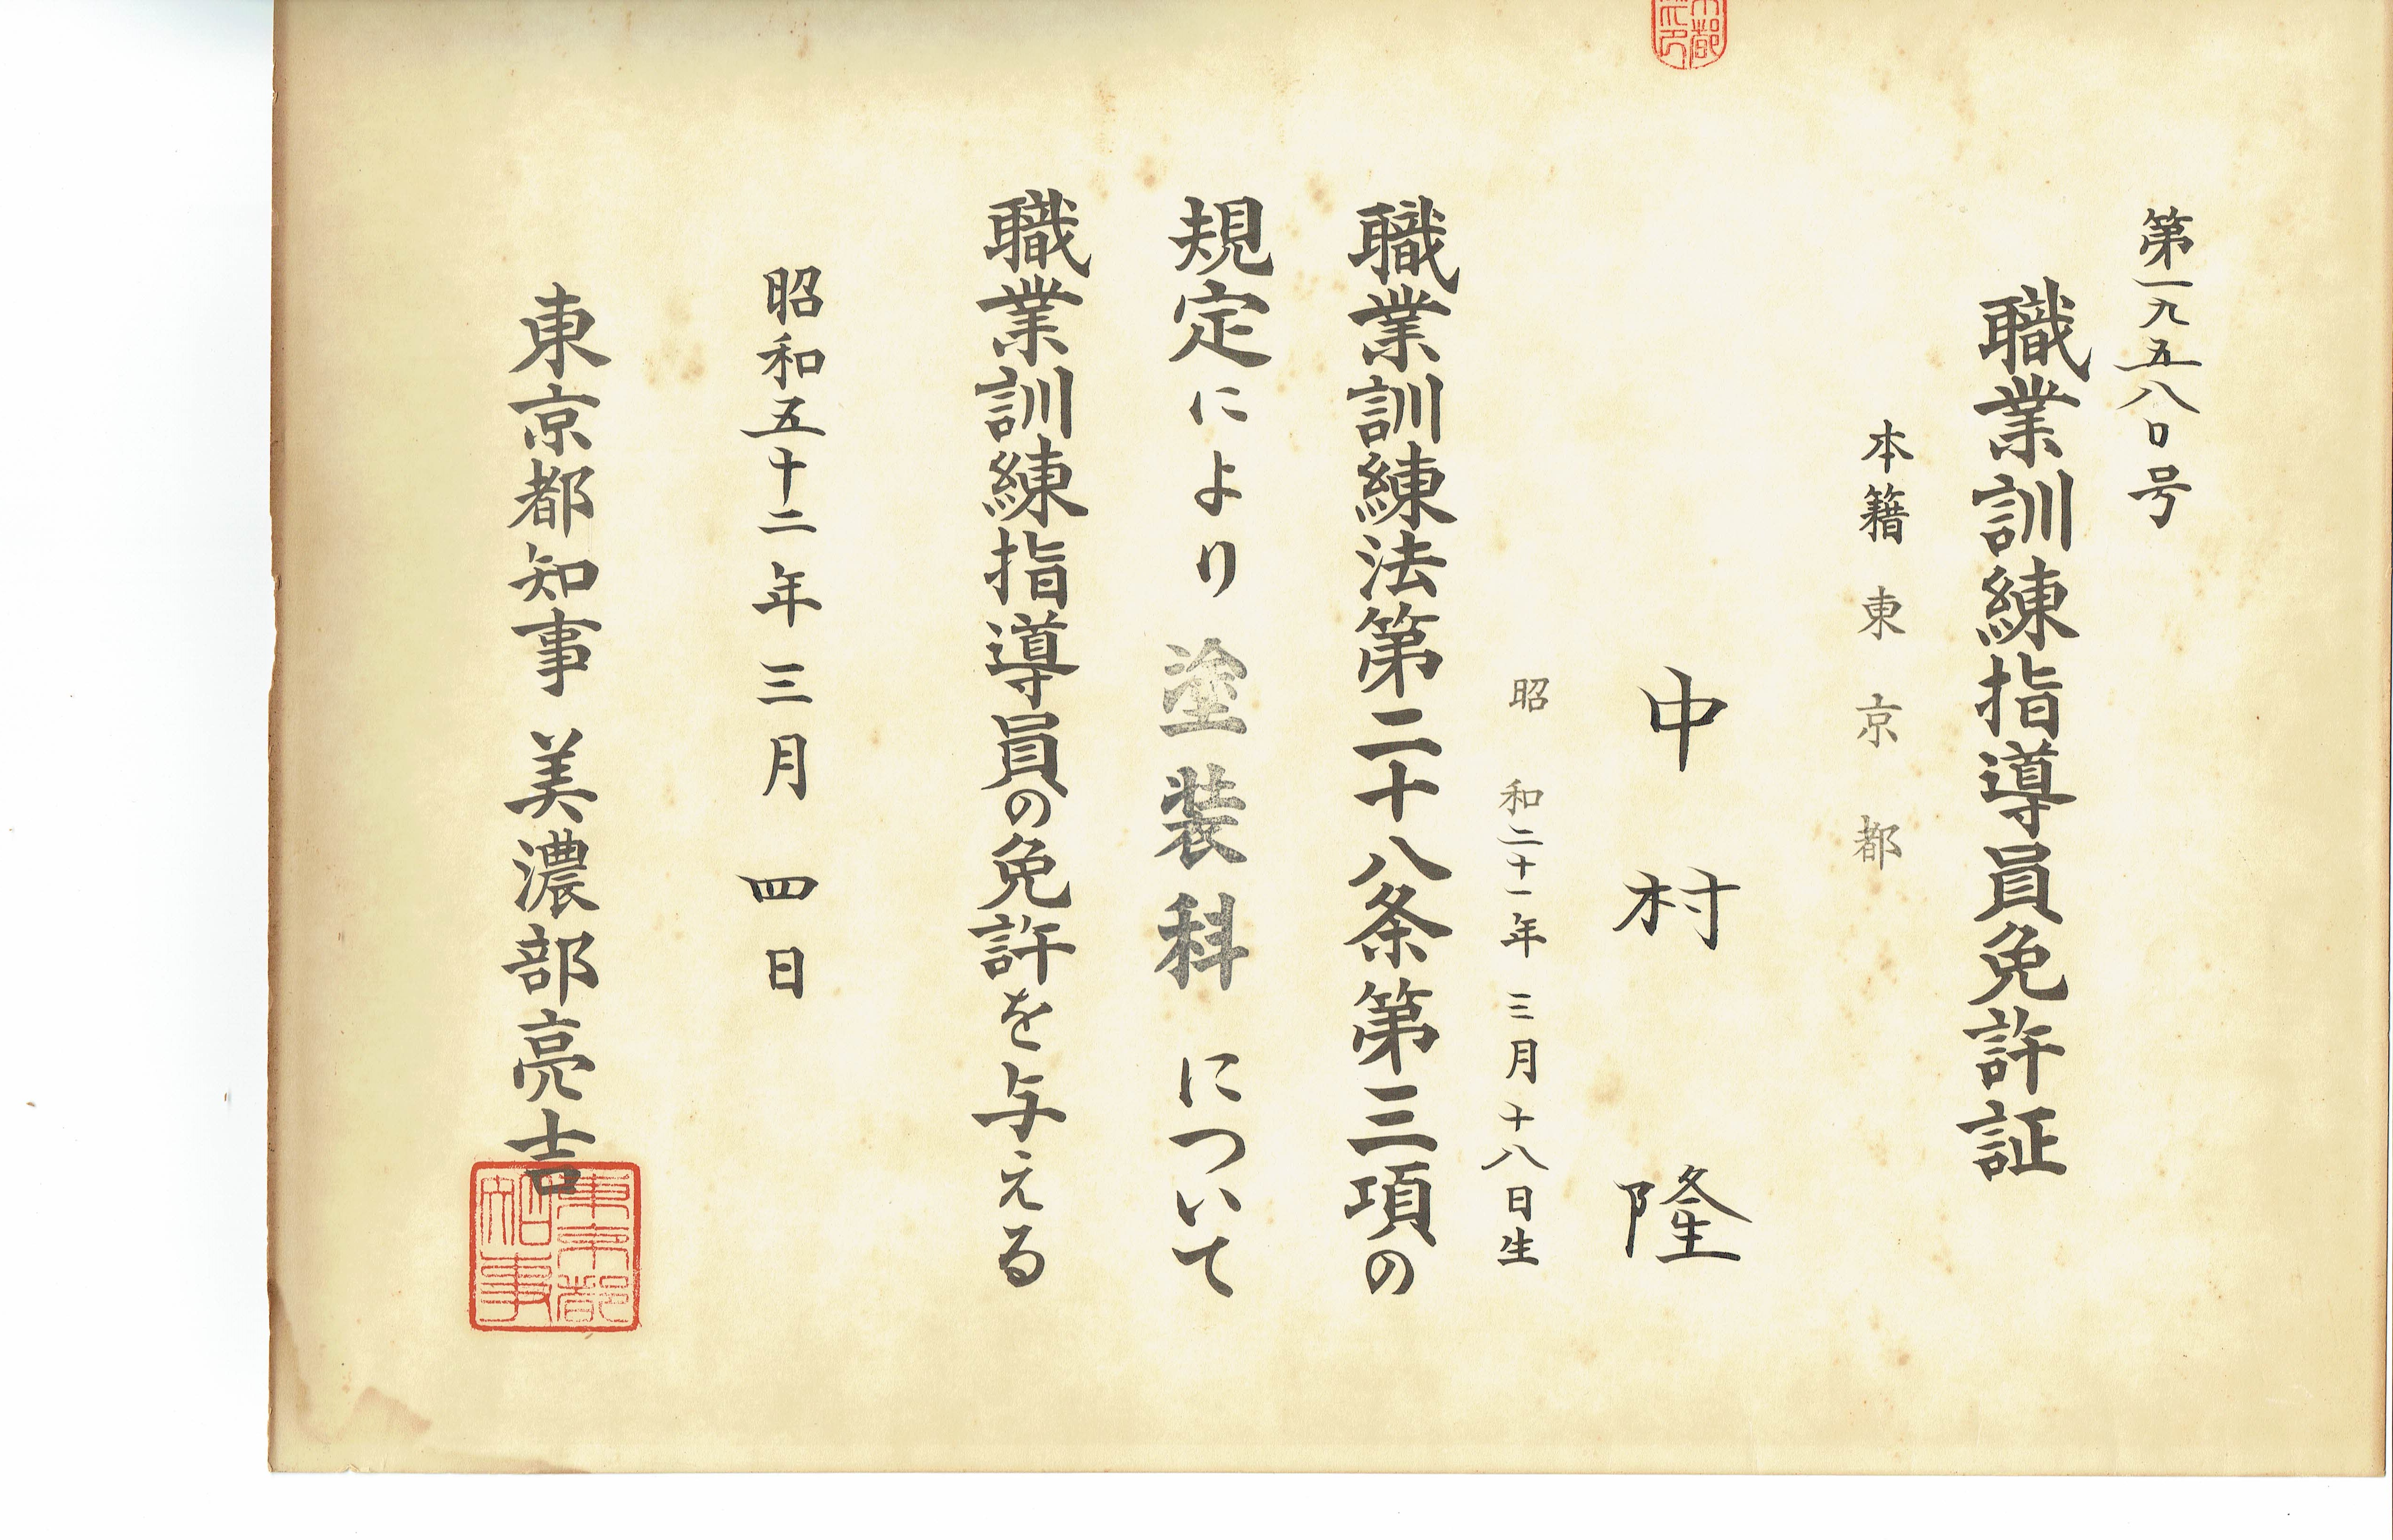 第一九五八〇号
職業訓練指導員免許証
本籍 東京都
中村 隆
昭和二十一年三月十八日生
職業訓練法第二十八条第三項の
規定により 塗装科 について
職業訓練指導員の免許を与える
昭和五十二年三月四日
東京都知事 美濃部亮吉
東京都知事